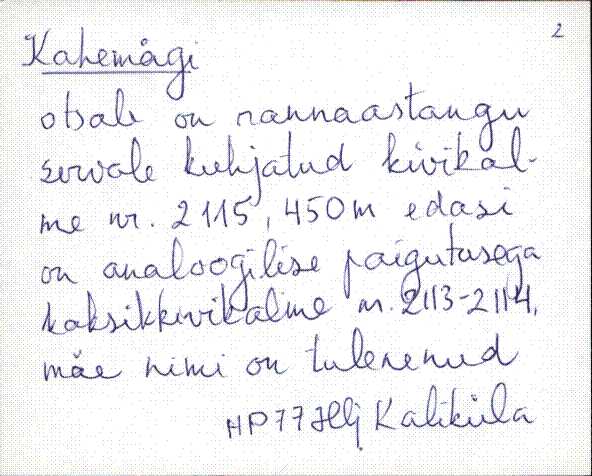 2
Kahemägi
otsale on rannaastangu
servale kuhjatud kivikal-
me nr. 2115, 450m edasi
on analoogilise paigutusega
kaksikkivikalme nr. 2113-2114,
mäe nimi on tulenenud
HP77 Hlj Kaliküla